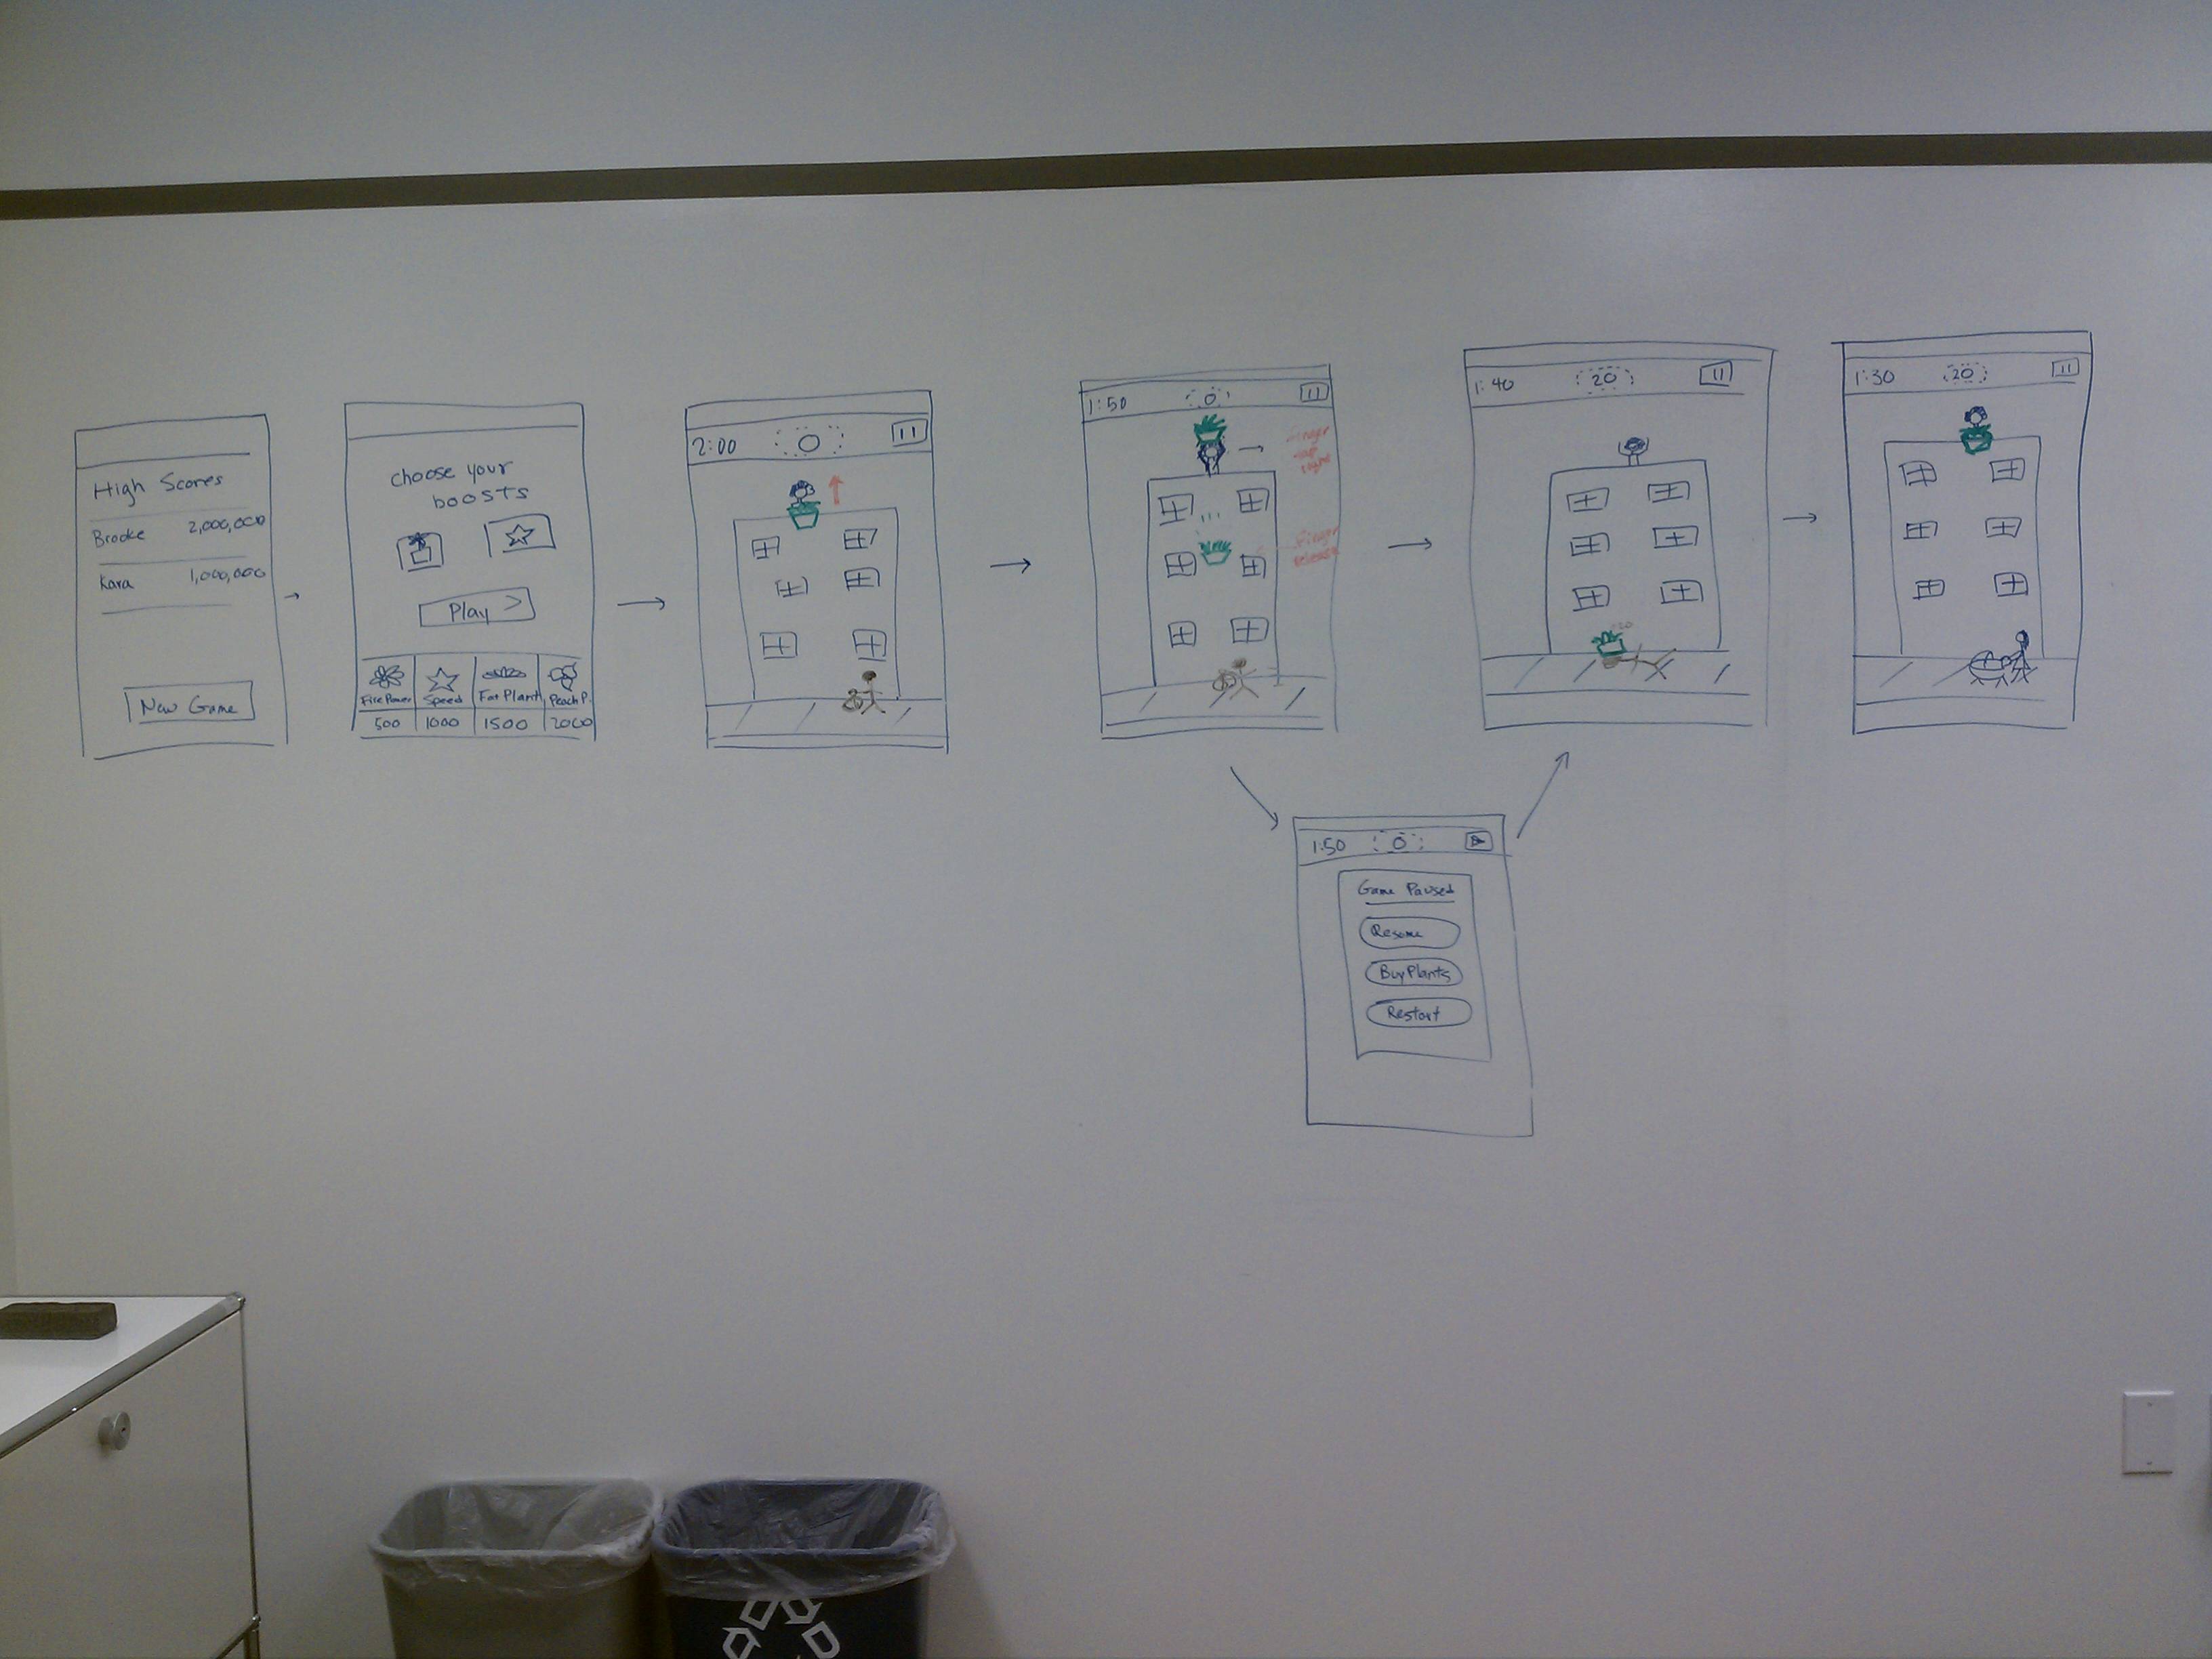 High Scores
Brooke 2,000,000
Kara 1,000,000
New Game
choose your
boosts
Play >
Fire Power Speed Fat Plant Peach P.
500 1000 1500 2000
2:00 0
1:50 0
finger
tap
right
finger
release
1:40 20
+20
1:30 20
1:50 0
Game Paused
Resume
Buy Plants
Restart